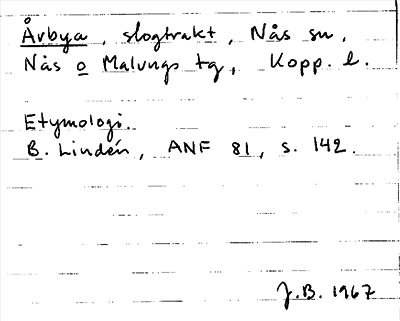 Årbya, slogtrakt, Nås sn,
Nås o Malungs tg, Kopp. l.
Etymologi.
B. Lindén, ANF 81, s. 142.
J.B. 1967